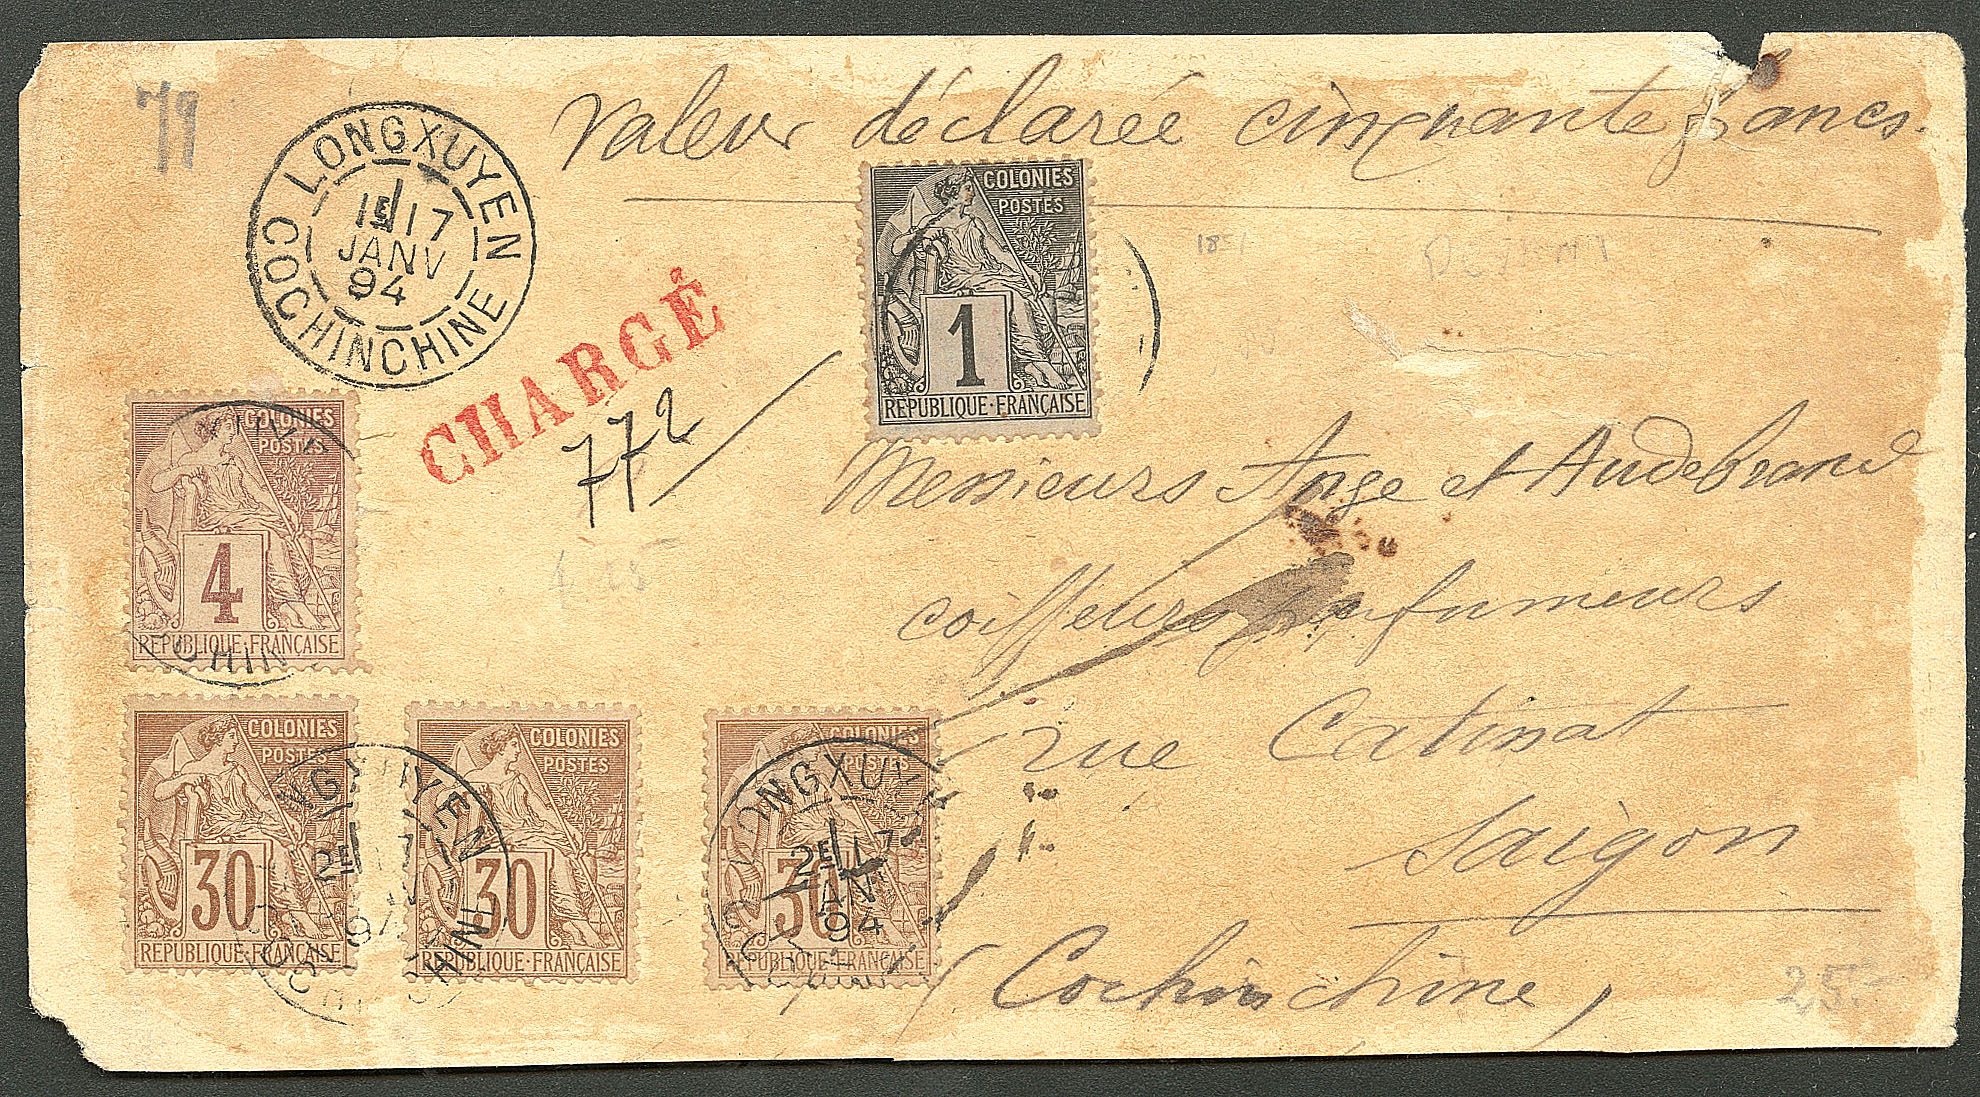 79
valeur déclarée cinquante francs.
LONGXUYEN
1E 17
JANV
94
COCHINCHINE
CHARGÉ
772
COLONIES
POSTES
1
REPUBLIQUE·FRANÇAISE
Messieurs Ange et Audebrand
coiffeurs parfumeurs
rue Catinat
Saigon
Cochinchine
COLONIES
POSTES
4
REPUBLIQUE·FRANÇAISE
COLONIES
POSTES
30
REPUBLIQUE·FRANÇAISE
COLONIES
POSTES
30
REPUBLIQUE·FRANÇAISE
NGXUYEN
2E
94
COLONIES
POSTES
30
REPUBLIQUE·FRANÇAISE
LONGXUY
2E 17
JAN
94
25.-